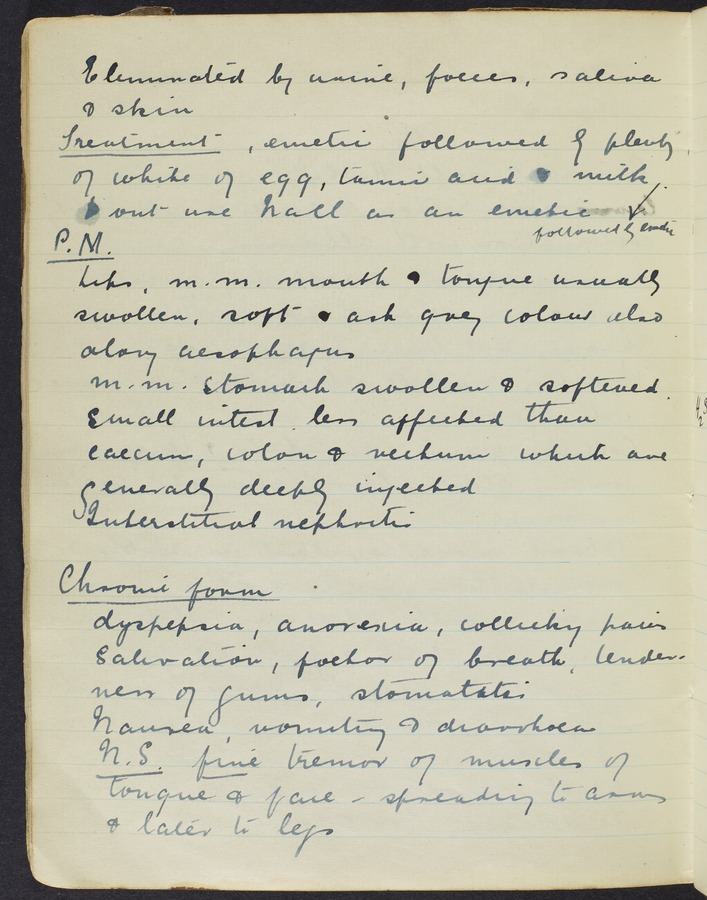 Eliminated by urine, foeces, saliva
& skin
Treatment, emetic followed by plenty
of white of egg, tannic acid & milk.
Dont use NaCl as an emetic
followed by emetic
P.M.
Lips, m.m. mouth & tongue usually
swollen, soft & ash grey colour also
along aesophagus
m.m. Stomach swollen & softened.
Small intest. less affected than
caecum, colon & rectum which are
generally deeply injected
Interstitial nephritis
Chronic form
dyspepsia, anorexia, collicky pains
Salivation, foetor of breath, tender-
ness of gums, stomatitis
Nausea, vomiting & diarrhoea
N.S. fine tremor of muscles of
tongue & face - spreading to arms
& later to legs